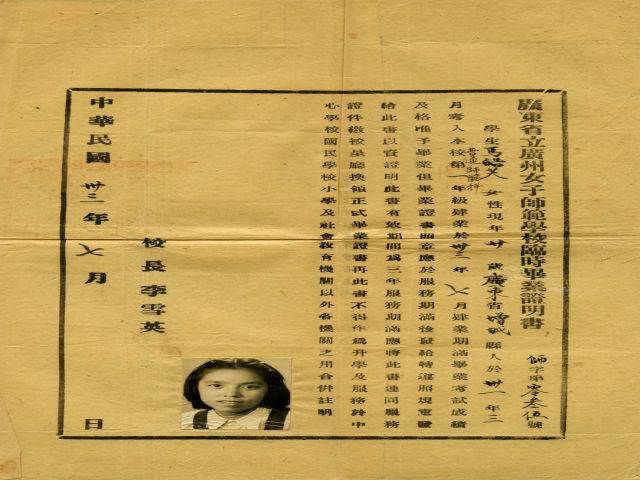 廣東省立廣州女子師範學校臨時畢業證明書
師字第零叁伍號
學生馬英女性現年廿歲廣東省增城縣人於卅一年三
月考入本校普通師範科第一年級肄業於卅三年七月肄業期滿畢業考試成績
及格准予畢業但畢業證書照章應於服務期滿後發給特遵照規定發
給此書以資證明此書有效期間爲三年服務期滿應將此書連同服務
證件繳校呈廳換領正式畢業證書再此書不得作爲升學及服務於中
心學校國民學校小學及社會教育機關以外各機關之用合併註明
校長李雪英
中華民國卅三年七月日